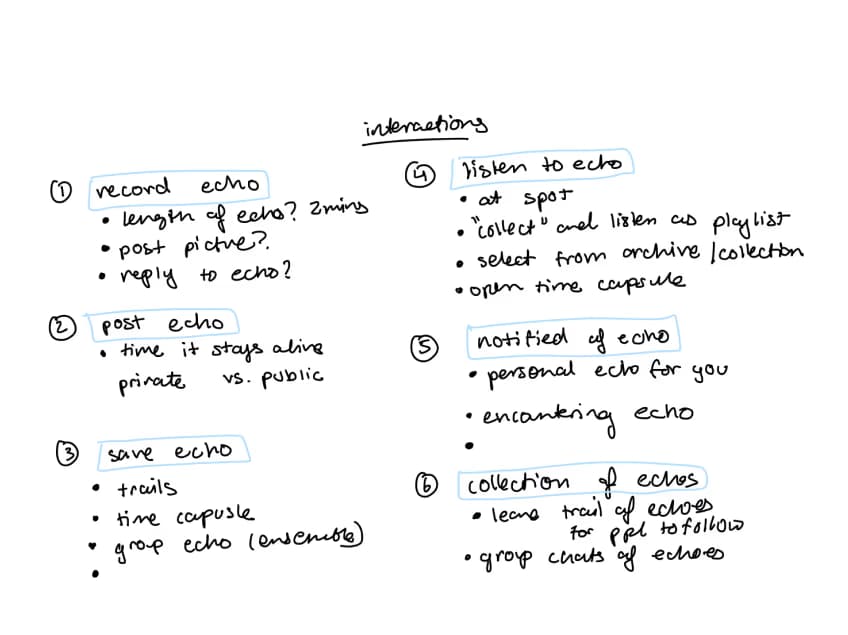 interactions
① record echo
• length of echo? 2mins
• post picture?
• reply to echo?
② post echo
• time it stays alive
private vs. public
③ save echo
• trails
• time capusle
• group echo (ensemble)
•
④ listen to echo
• at spot
• "collect" and listen as playlist
• select from archive / collection
• open time capsule
⑤ notified of echo
• personal echo for you
• encantering echo
•
⑥ collection of echoes
• leave trail of echoes
for ppl to follow
• group chats of echoes